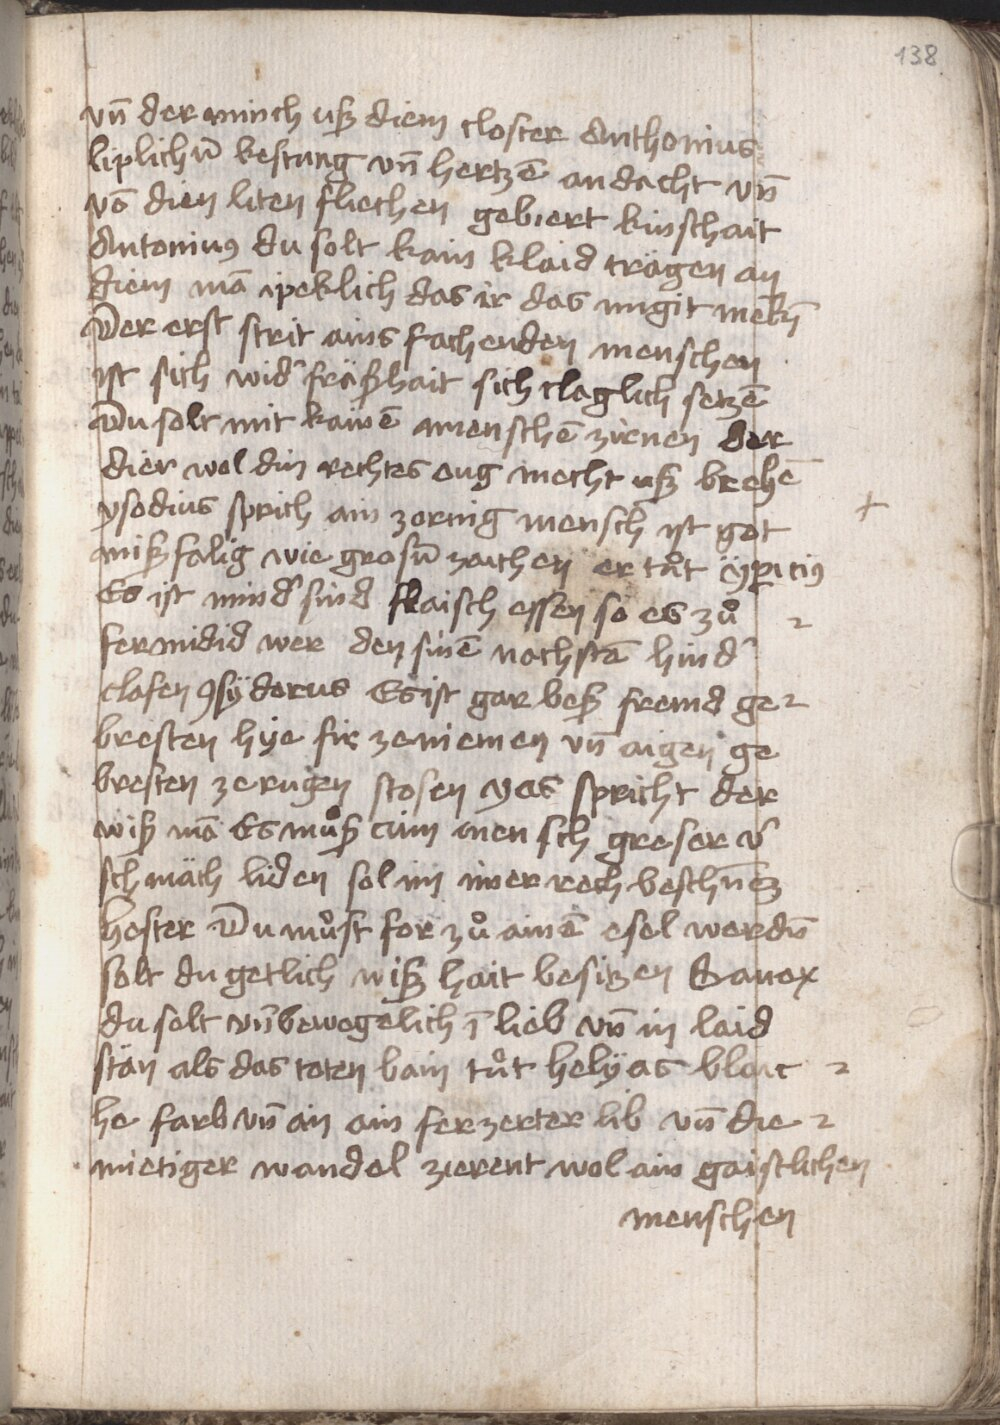 138
vn̄ der minch uſz diem closter Anthonius
liplichū kestung vn̄ hertzē andacht vn̄
vō dien liten fliechen gebiert kinschait
Antonius du solt kain klaid trägen an
diem mā ipeklich das ir das mugit mekn̄
Der erst strit ains fachenden menschen
ist sich wid͛ fräſzhait sich claglich setzē
Du solt mit kainē menschē zirnen der
dier wol din rechtes oug mecht uſz brehē
ysodius sprich ain zornig mensch ist got
miſzfalig wie grosū zaichen er tůt ÿpicius
Es ist mind͛ sind flaisch essen so es zů
fermidid wer den sinē nachstā hind͛
clafen ysÿdorus Es ist gar beſz fremd ge
bresten hÿe fir ze niemen vn̄ aigen ge
bresten ze rugen stosen yas spricht der
wiſz mā Es můſz aim mensch greser v͛
schmäch liden sol im imer rech beschēz
hester Du můst for zů ainē esel werdn̄
solt du getlich wiſzhait besitzen Banox
du solt vn̄bewegelich ī lieb vn̄ in laid
stān als das toten bain tůt helÿas blaic
he farb vn̄ an ain ferzerter lib vn̄ die
mietiger wandel zierent wol ain gaistlichen
menschen